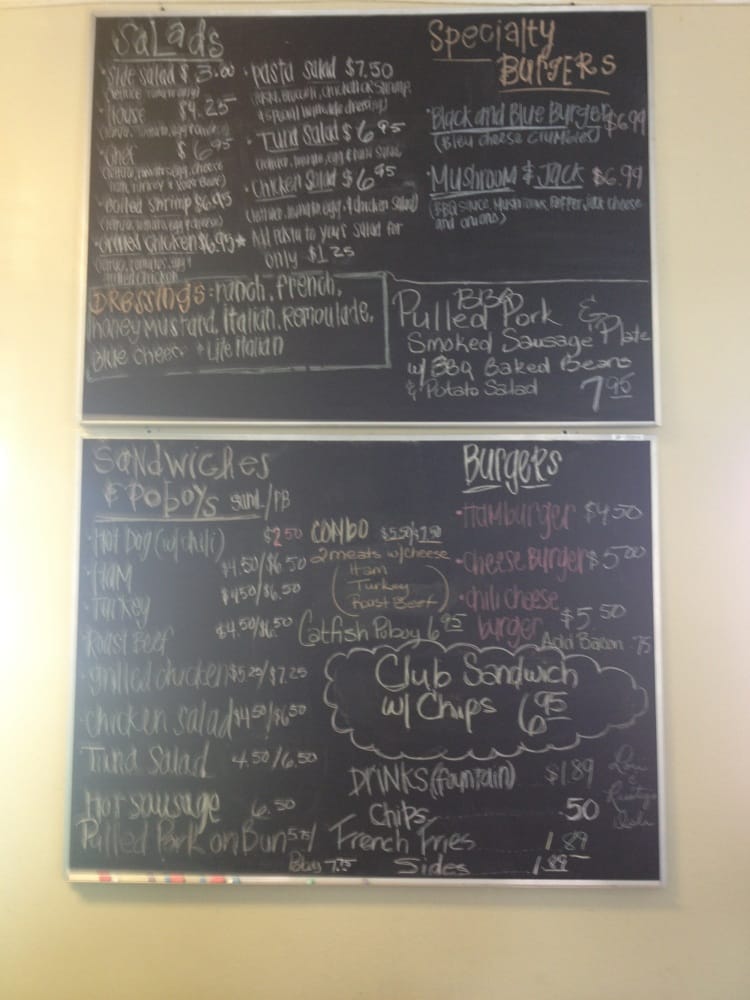 Salads
Side salad $3.00
(lettuce, tomato only)
House $4.25
Chef $6.95
(lettuce, tomato, egg, cheese
ham, turkey & roast beef)
Boiled shrimp $6.95
Grilled chicken $6.95
grilled chicken
Pasta salad $7.50
Tuna Salad $6.95
(lettuce, tomato, egg & tuna salad)
Chicken Salad $6.95
(lettuce, tomato, egg & chicken salad)
★ Add pasta to your salad for
only $1.25
Dressings: ranch, french,
honey mustard, Italian, Remoulade,
Blue Cheese + Lite Italian
Specialty
Burgers
Black and Blue Burger $6.99
(Bleu cheese crumbles)
Mushroom & Jack $6.99
(BBQ sauce, mushrooms, pepper jack cheese
and onions)
BBQ
Pulled Pork &
Smoked Sausage Plate
w/ BBQ Baked Beans
& Potato Salad 7.95
Sandwiches
& Poboys
Hot Dog (w/chili) $2.50
Ham $4.50/$6.50
Turkey $4.50/$6.50
Roast Beef $4.50/$6.50
grilled chicken $5.25/$7.25
chicken salad $4.50/$6.50
Tuna Salad 4.50/6.50
Hot sausage 6.50
Pulled Pork on Bun 5.75/
Poboy 7.75
Combo $5.50/$7.50
2 meats w/cheese
Ham
Turkey
Roast Beef
Catfish Poboy 6.95
Burgers
Hamburger $4.50
cheese Burger $5.00
chili cheese
burger $5.50
Add Bacon .75
Club Sandwich
w/ Chips 6.95
Drinks (fountain) $1.89
Chips .50
French Fries 1.89
Sides 1.89